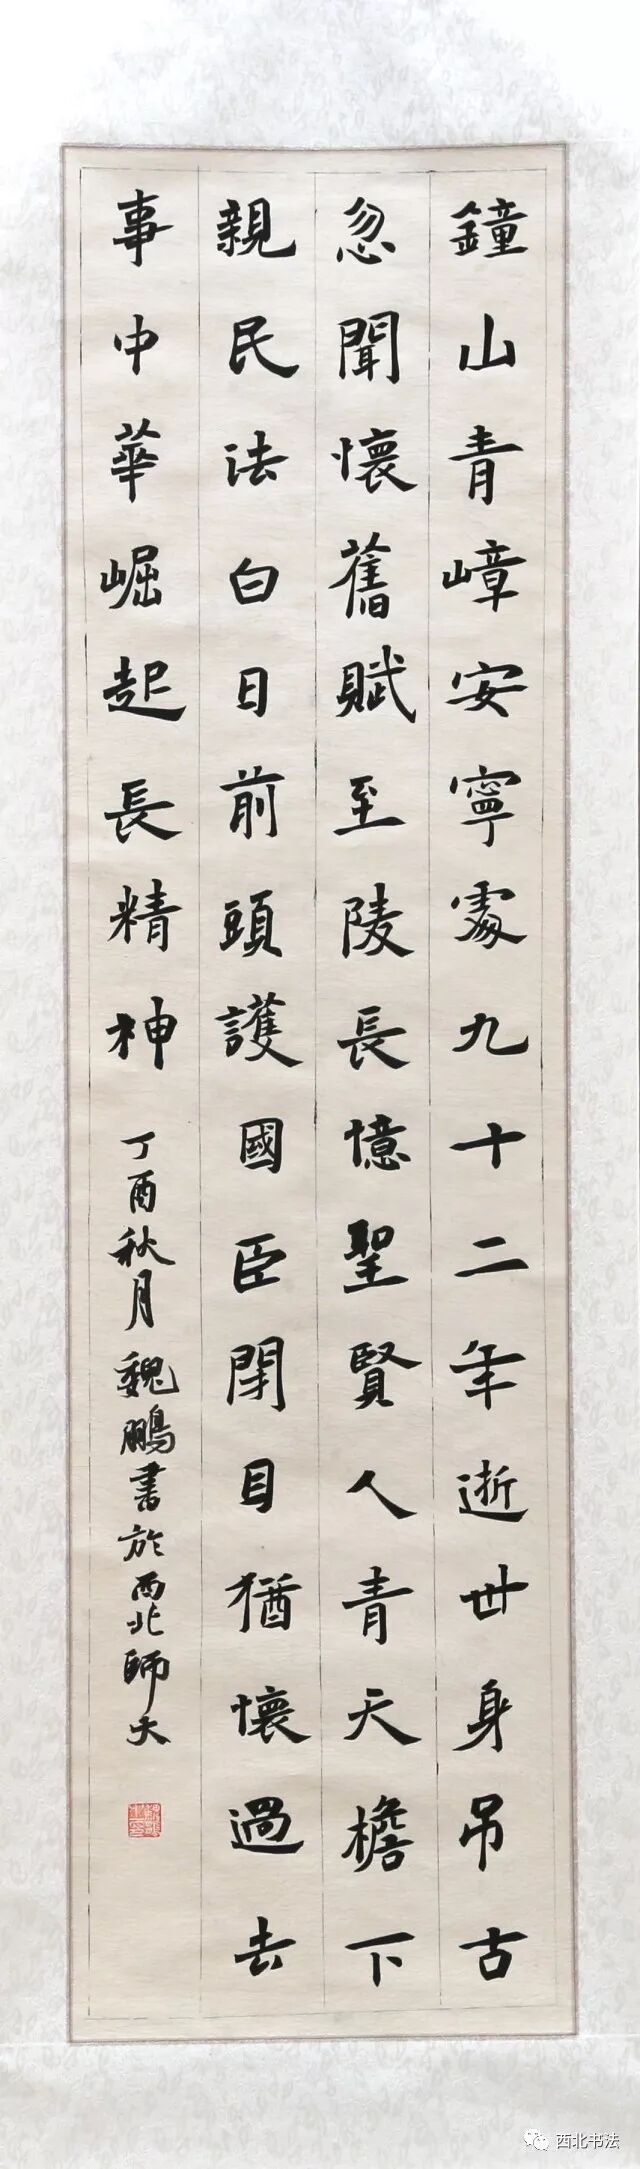 鐘山青嶂安寧處九十二年逝世身吊古
忽聞懷舊賦至陵長憶聖賢人青天檐下
親民法白日前頭護國臣閉目猶懷過去
事中華崛起長精神
丁酉秋月魏鵬書於西北師大
西北书法